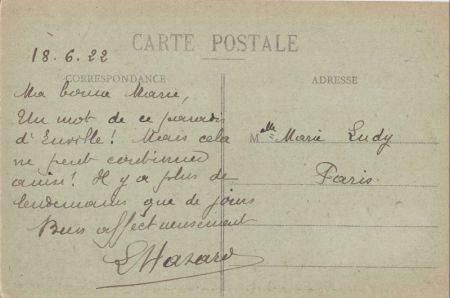 18.6.22
CARTE POSTALE
CORRESPONDANCE
ADRESSE
Ma bonne Marie,
Un mot de ce paradis
d'Enville! Mais cela
ne peut continuer
ainsi! Il y a plus de
lendemains que de jours
Bien affectueusement
LHazard
Melle Marie Ludy
Paris.